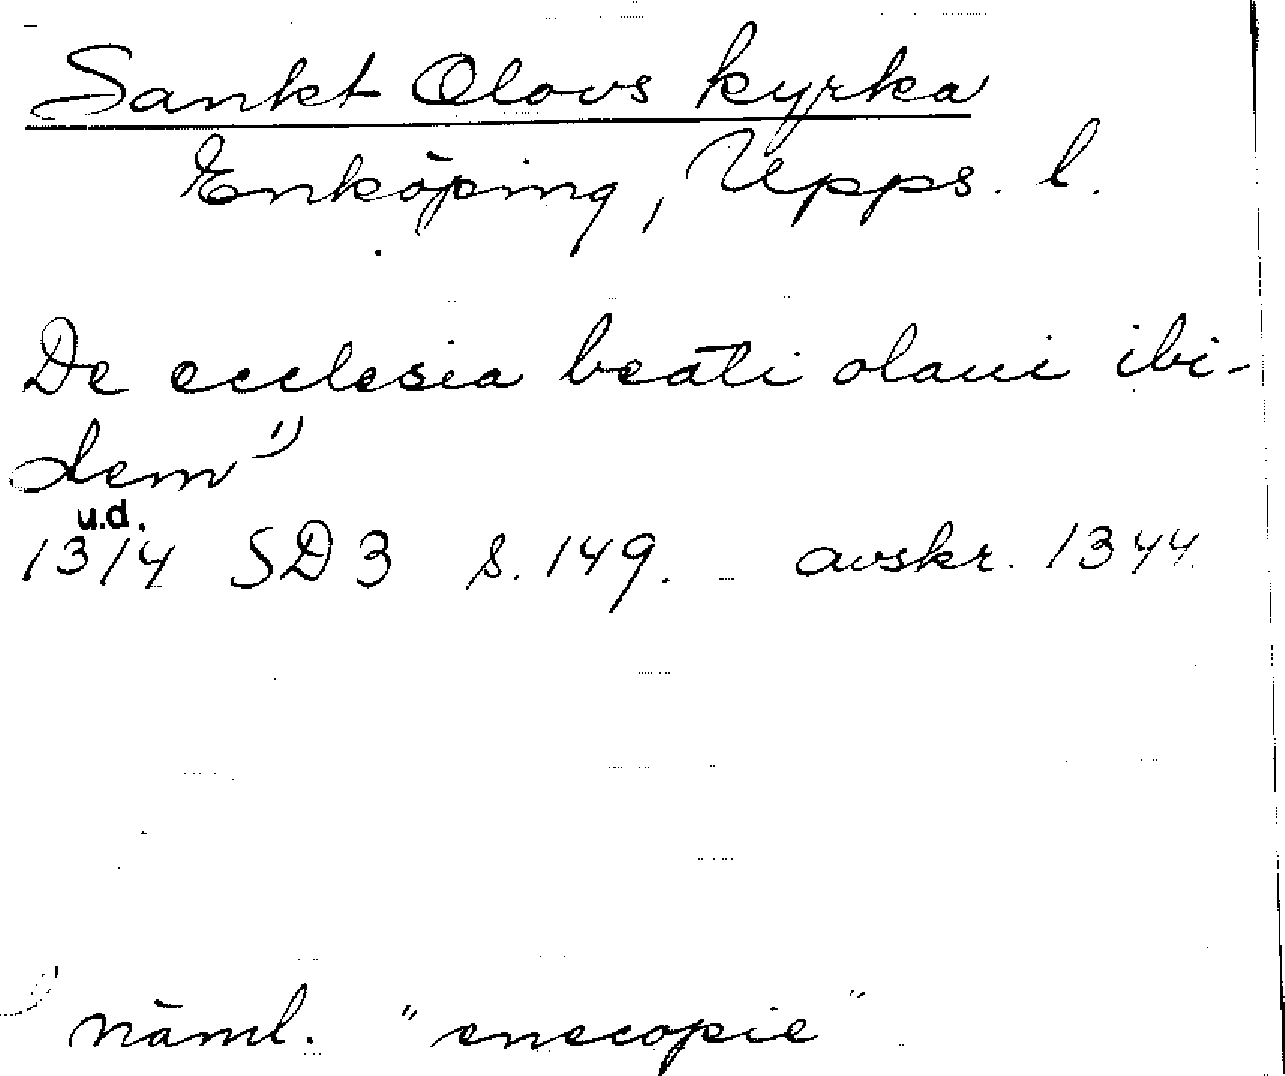 Sankt Olovs kyrka
Enköping, Upps. l.
De ecclesia beati olaui ibi-
dem 1)
u.d.
1314 SD 3 s. 149. - avskr. 1344
1) näml. "enecopie"